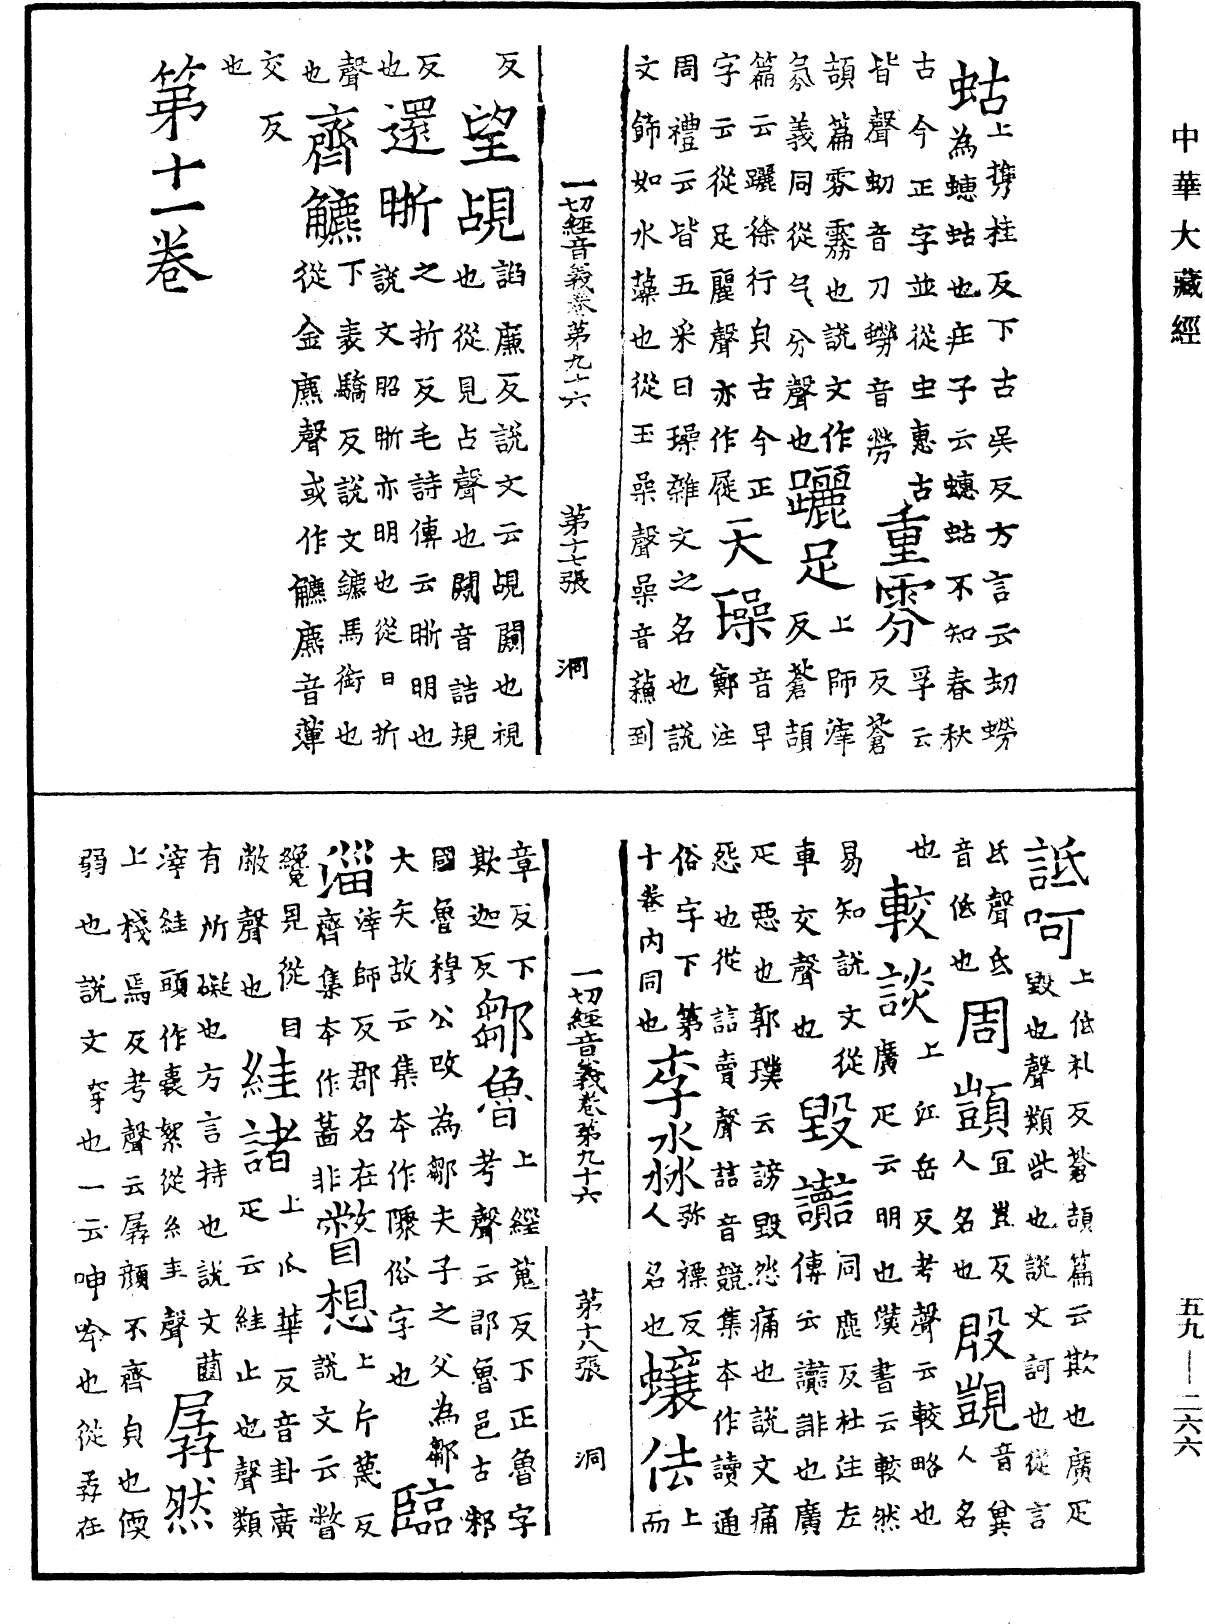 中華大藏經
蛄上攜桂反下古吳反方言云虭蟧
為蟪蛄也莊子云蟪蛄不知春秋
古今正字並從虫惠古
皆聲虭音刀蟧音勞
重雰孚云
反蒼
頡篇雰霧也說文作
氛義同從气分聲也
躧足上師滓
反蒼頡
篇云躧徐行貟古今正
字云從足麗聲亦作屣
天璪音早
鄭注
周禮云皆五采曰璪雜文之名也說
文飾如水藻也從王喿聲喿音蘓到
一切經音義卷第九十六 第十七張 洞
反
望覘詀廉反說文云覘闚也視
也從見占聲也闚音詰規
反
也
還晣之折反毛詩傳云晣明也
說文昭晣亦明也從日折
聲
也
齊鑣下表驕反說文鑣馬銜也
從金麃聲或作䚩麃音薄
交反
也
第十一卷
詆呵上低礼反蒼頡篇云欺也廣疋
毀也聲類呰也說文訶也從言
氐聲氐
音低也
周顗宜豈反
人名也
殷覬音兾
人名
也
較談上江岳反考聲云較略也
廣疋云明也漢書云較然
易知說文從
車交聲也
毀讟同鹿反杜注左
傳云讟誹也廣
疋惡也郭璞云謗毀怨痛也說文痛
怨也從誩賣聲誩音競集本作讀通
俗字下第
十卷內同也
李淼弥褾反
人名也
蠰佉上
而
一切經音義卷第九十六 第十八張 洞
章反下
欺迦反
鄒魯上緅蒐反下正魯字
考聲云鄒魯邑古邾
國魯穆公改為鄒夫子之父為鄒
大夫故云集本作陬俗字也
臨
淄滓師反郡名在
齊集本作菑非
瞥想上片蔑反
說文云瞥
纔見從目
敝聲也
絓諸上瓜華反音卦廣
疋云絓止也聲類
有所礙也方言持也說文繭
滓絓頭作囊絮從糸圭聲
孱然
上棧焉反考聲云孱顏不齊貟也愞
弱也說文穿也一云呻吟也從孨在
五九——二六六